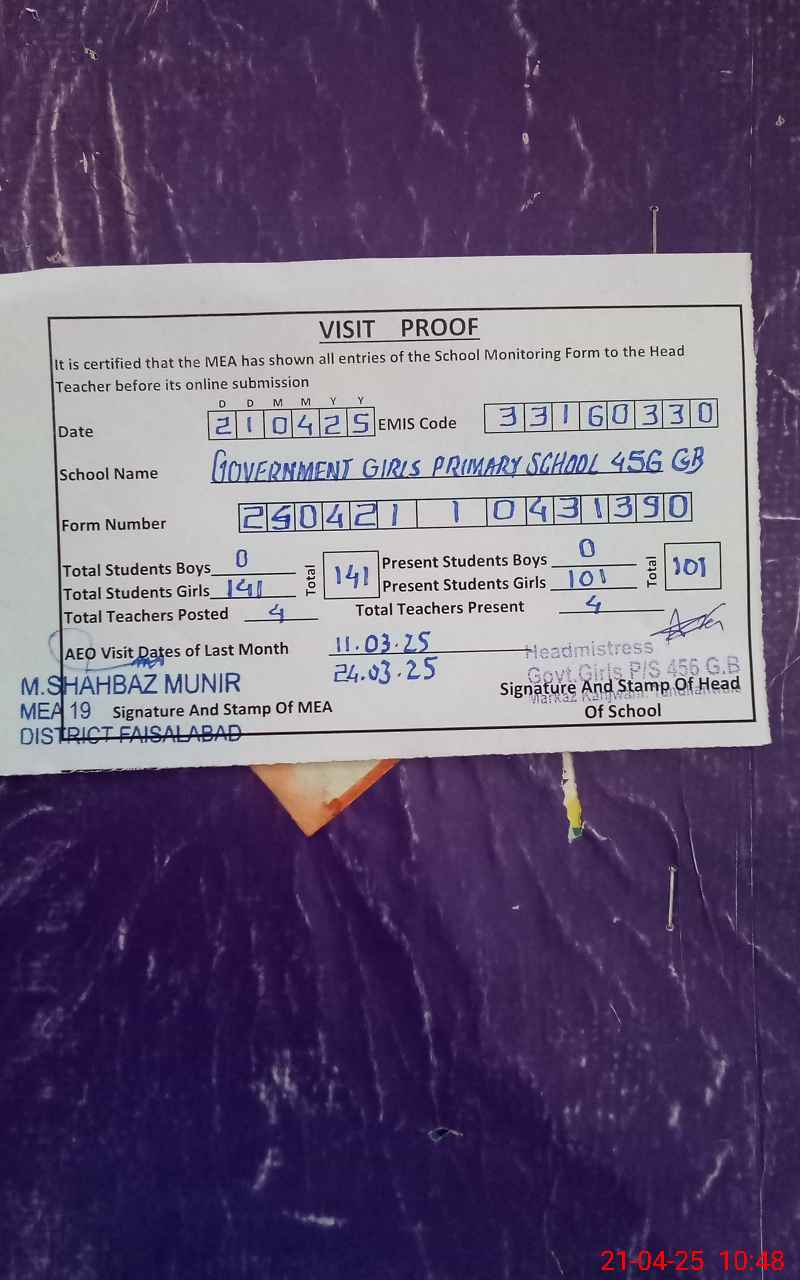 VISIT PROOF
It is certified that the MEA has shown all entries of the School Monitoring Form to the Head
Teacher before its online submission
D D M M Y Y
Date 210425 EMIS Code 33160330
School Name GOVERNMENT GIRLS PRIMARY SCHOOL 456 GB
Form Number 250421 1 0431390
Total Students Boys 0 Present Students Boys 0
Total Students Girls 141 Total 141 Present Students Girls 101 Total 101
Total Teachers Posted 4 Total Teachers Present 4
AEO Visit Dates of Last Month 11.03.25
24.03.25
Headmistress
Govt.Girls P/S 456 G.B
M.SHAHBAZ MUNIR
MEA 19
DISTRICT FAISALABAD
Signature And Stamp Of MEA
Signature And Stamp Of Head
Of School
21-04-25 10:48